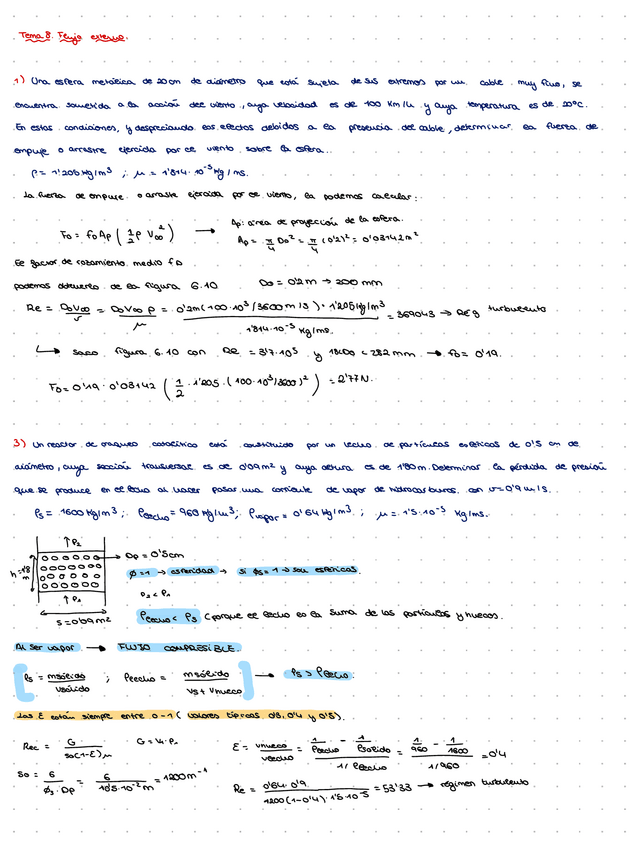 Tema 8. Flujo externo.
1) Una esfera metálica de 20 cm de diámetro que está sujeta de sus extremos por un cable muy fino, se
encuentra sometida a la acción del viento, cuya velocidad es de 100 Km/h y cuya temperatura es de 20ºC.
En estas condiciones, y despreciando los efectos debidos a la presencia del cable, determinar la fuerza de
empuje o arrastre ejercida por el viento sobre la esfera.
ρ = 1'205 Kg/m³ ; μ = 1'814·10⁻⁵ Kg/ms.
La fuerza de empuje o arrastre ejercida por el viento, la podemos calcular:
F_D = f_D A_P (1/2 ρ V∞²) → A_P: área de proyección de la esfera.
A_P = π/4 D_o² = π/4 (0'2)² = 0'03142 m²
El factor de rozamiento medio f_D
podemos obtenerlo de la figura 6.10 D_o = 0'2m → 200 mm
Re = D_o V∞/ν = D_o V∞ ρ/μ = 0'2m (100·10³/3600 m/s) · 1'205 kg/m³ / 1'814·10⁻⁵ Kg/ms. = 369043 → REG turbulento
↳ saco figura 6.10 con Re = 3'7·10⁵ y → f_D = 0'19.
F_D = 0'19 · 0'03142 (1/2 · 1'205 · (100·10³/3600)²) = 2'77N.
3) Un reactor de craqueo catalítico está constituido por un lecho de partículas esféricas de 0'5 cm de
diámetro, cuya sección transversal es de 0'09 m² y cuya altura es de 1'80 m. Determinar la pérdida de presión
que se produce en el lecho al hacer pasar una corriente de vapor de hidrocarburos con v = 0'9 m/s.
ρs = 1600 Kg/m³ ; ρlecho = 960 Kg/m³ ; ρvapor = 0'64 Kg/m³ ; μ = 1'5·10⁻⁵ Kg/ms.
↑ P₂
→ Dp = 0'5cm
h = 1'8 m
ϕ = 1 → esfericidad → si ϕs = 1 → son esféricas.
P₂ < P₁
↑ P₁
ρlecho < ρs (porque el lecho es la suma de las partículas y huecos).
S = 0'09 m²
Al ser vapor → FLUJO COMPRESIBLE.
[ρs = msólido/Vsólido ; ρlecho = msólido/(Vs + Vhueco)] → ρs > ρlecho
Las ε están siempre entre 0-1 (valores típicos 0'3, 0'4 y 0'5).
Rec = G/(so(1-ε)μ) G = v·ρ. ε = Vhueco/Vlecho = (1/ρlecho - 1/ρsólido)/(1/ρlecho) = (1/960 - 1/1600)/(1/960) = 0'4
so = 6/(ϕs·Dp) = 6/(1·0'5·10⁻² m) = 1200 m⁻¹
Re = 0'64·0'9/(1200(1-0'4)·1'5·10⁻⁵) = 53'33 → régimen turbulento